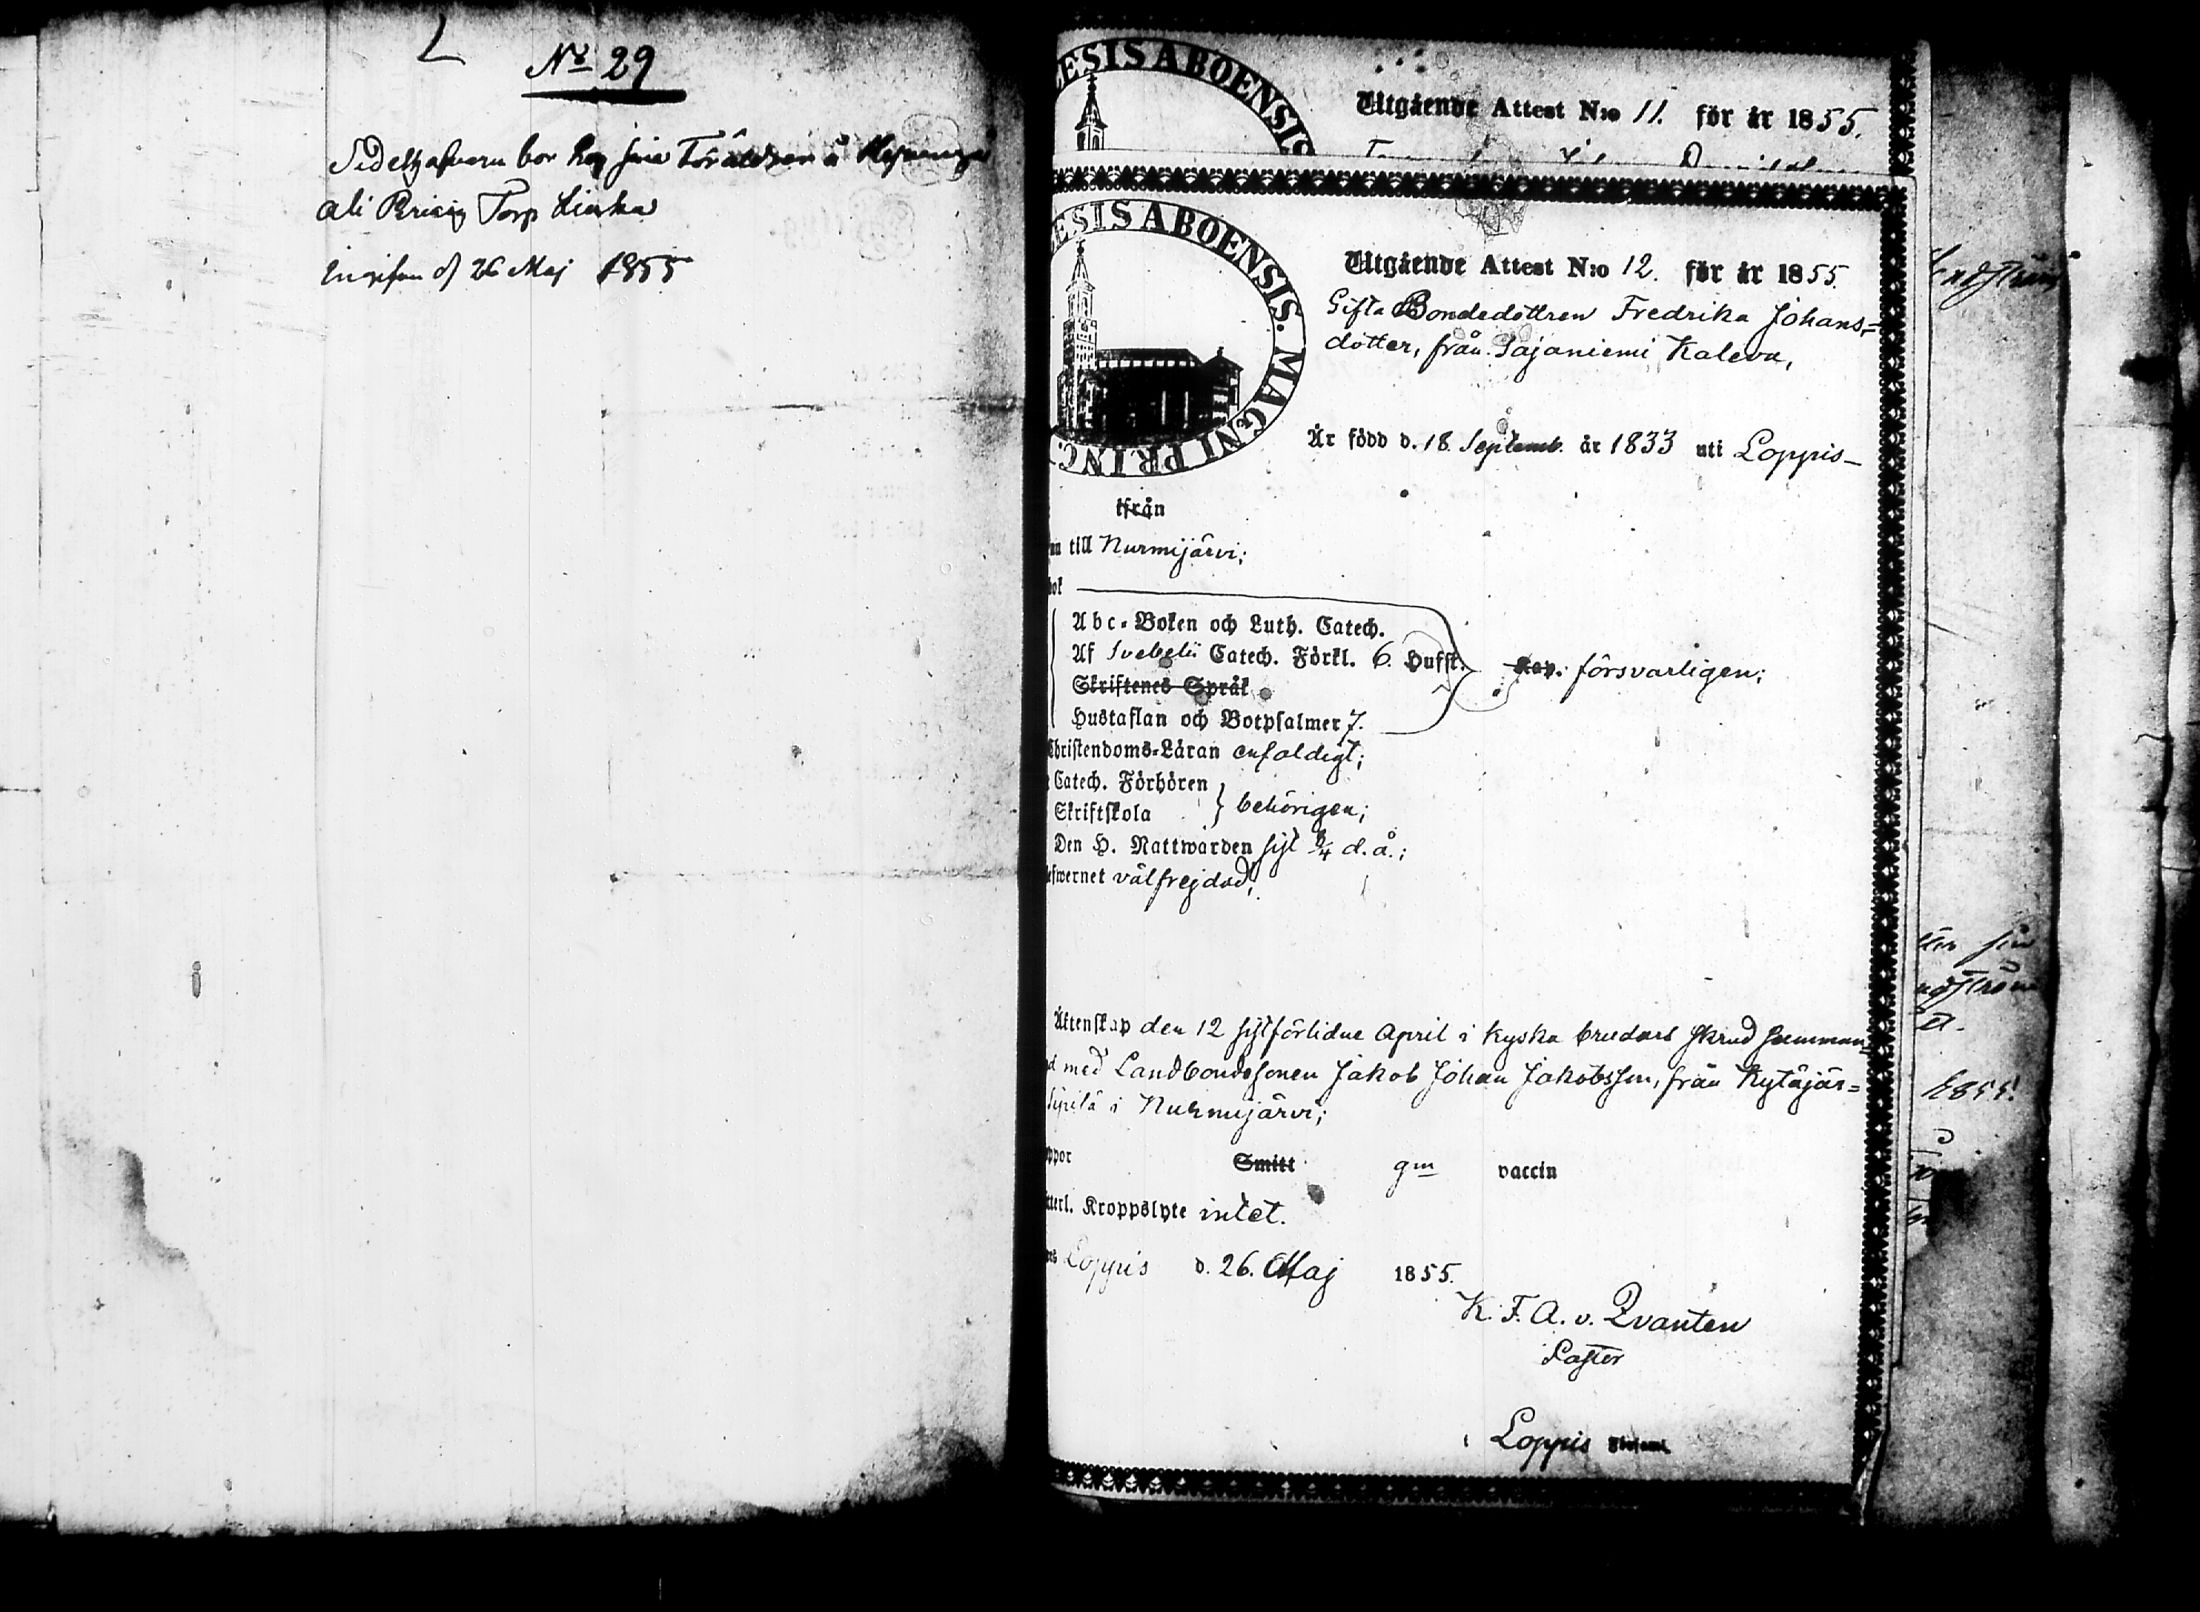 No 29
Sedelhafvaren bor hos sina Föräldrar å
Torp
d 26 Maj 1855
ESIS ABOENSIS
Utgående Attest N:o 11. för år 1855.
ESIS ABOENSIS. MAGNI PRINC.
Utgående Attest N:o 12. för år 1855.
Gifta Bondedottren Fredrika Johans=
dotter, från Sajaniemi Kaleva,
Är född d. 18 Septemb. år 1833 uti Loppis_
ifrån
till Nurmijärvi;
bok
Abc-Boken och Luth. Catech.
Af Svebelii Catech. Förkl. 6. Hufst.
Kap. försvarligen;
Skriftenes Språk
Hustaflan och Botpsalmer 7.
Christendoms-Läran enfaldigt;
Catech. Förhören
Skriftskola } behörigen;
Den H. Nattwarden sist d. å.;
efwernet välfrejdad;
Äktenskap den 12 sistförlidne April i kyska brudars skrud samman=
d med Landbondesonen Jakob Johan Jakobsson, från Kytäjär=
Sipilä i Nurmijärvi;
ppor Smitt gm vaccin
tterl. Kroppslyte intet.
Loppis d. 26. Maj 1855.
K. F. A. v. Qvanten
Paster
i Loppis Församl.
1855!